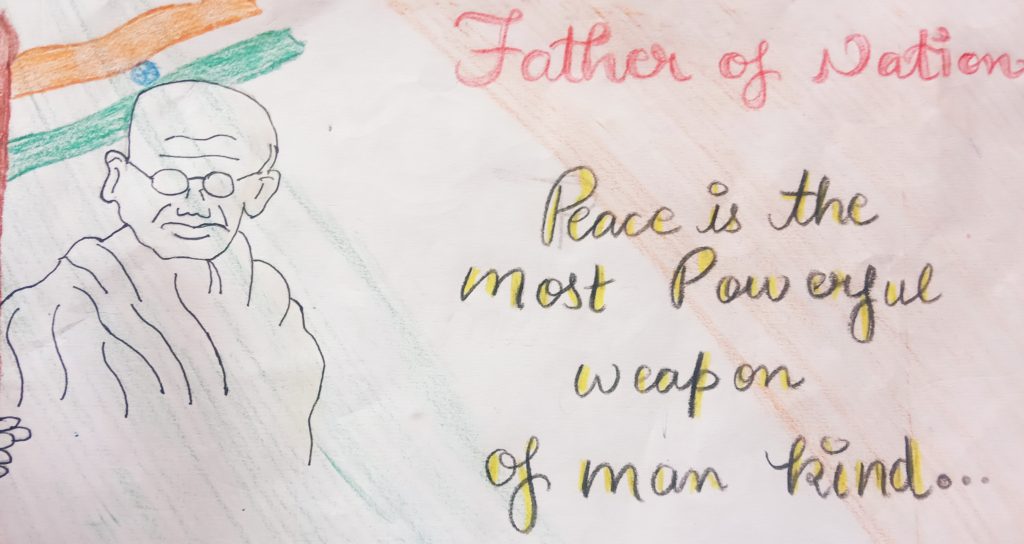 Father of Nation
Peace is the
most Powerful
weapon
of man kind...